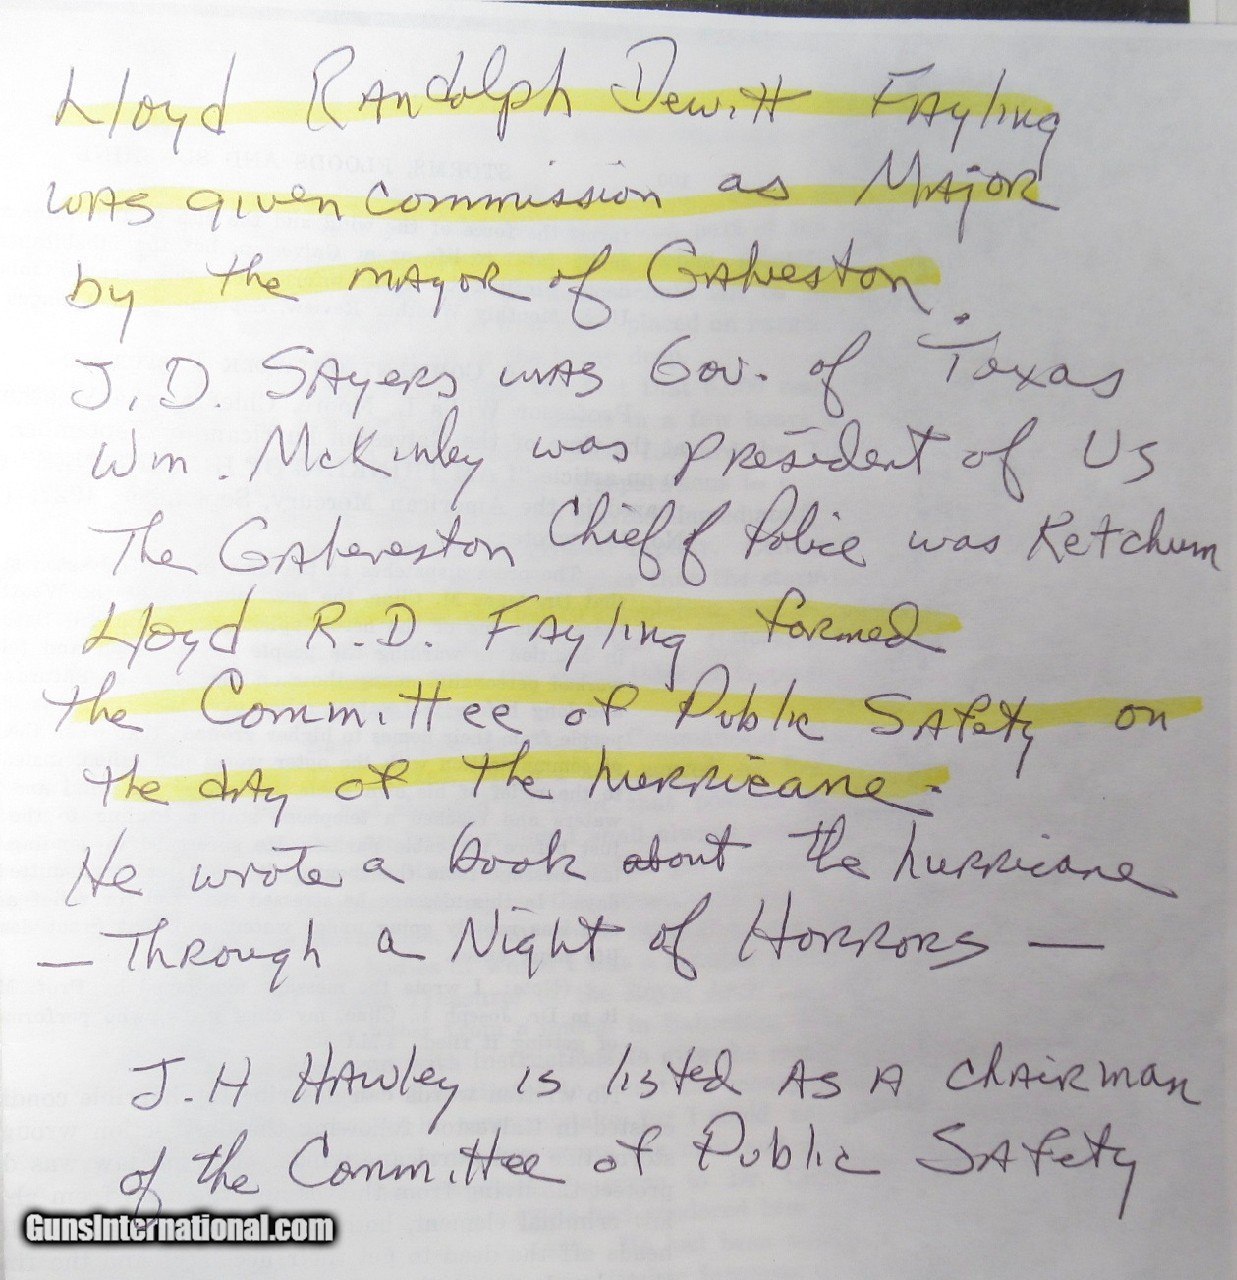 Lloyd Randolph Dewitt Fayling
was given commission as Major
by the mayor of Galveston.
J. D. Sayers was Gov. of Texas
Wm. McKinley was president of US
The Galveston Chief of Police was Ketchum
Lloyd R. D. Fayling formed
the Committee of Public Safety on
the day of the hurricane.
He wrote a book about the hurricane
— Through a Night of Horrors —
J. H Hawley is listed as a chairman
of the Committee of Public Safety
GunsInternational.com